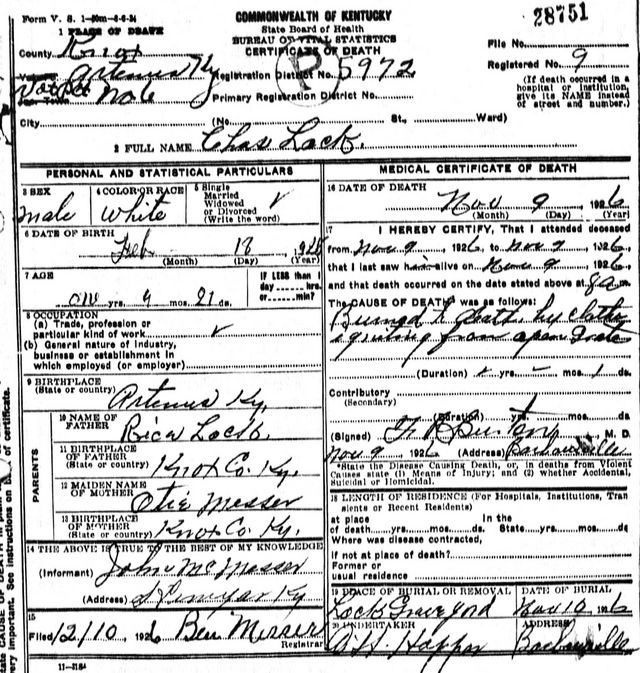 Form V. S. 1-
COMMONWEALTH OF KENTUCKY
State Board of Health
BUREAU OF VITAL STATISTICS
CERTIFICATE OF DEATH
28751
1 PLACE OF DEATH
County Knox
Artemus Ky
Vot Pct
No 6
Registration District No. 5972
P
Primary Registration District No.
File No.
Registered No. 9
(If death occurred in a
hospital or institution,
give its NAME instead
of street and number.)
City (No. St., Ward)
2 FULL NAME Chas Lack.
PERSONAL AND STATISTICAL PARTICULARS
3 SEX
male
4 COLOR OR RACE
white
5 Single
Married
Widowed
or Divorced
(Write the word)
6 DATE OF BIRTH
Feb 18
(Month) (Day) (Year)
7 AGE
yrs. mos. 21 ds.
IF LESS than 1
day hrs.
or min?
8 OCCUPATION
(a) Trade, profession or
particular kind of work
(b) General nature of industry,
business or establishment in
which employed (or employer)
9 BIRTHPLACE
(State or country) Artemus Ky.
PARENTS
10 NAME OF
FATHER
11 BIRTHPLACE
OF FATHER
(State or country) Knox Co. Ky.
12 MAIDEN NAME
OF MOTHER Otie Messer
13 BIRTHPLACE
OF MOTHER
(State or country) Knox Co. Ky.
14 THE ABOVE IS TRUE TO THE BEST OF MY KNOWLEDGE
(Informant) John Mc Messer
(Address) Ky
15
Filed 12/10, 1926 Ben Messer
Registrar
11-3184
MEDICAL CERTIFICATE OF DEATH
16 DATE OF DEATH
Nov 9, 1926
(Month) (Day) (Year)
17 I HEREBY CERTIFY, That I attended deceased
from Nov 9, 1926 to Nov 9, 1926
that I last saw him alive on Nov 9, 1926
and that death occurred on the date stated above at m.
The CAUSE OF DEATH was as follows:
Burned to death by clothes
igniting from open grate
(Duration) yrs. mos. 1 ds.
Contributory
(Secondary)
(Duration) yrs. mos. ds.
(Signed) Burton, M. D.
Nov 9, 1926 (Address) Barbourville
*State the Disease Causing Death, or, in deaths from Violent
Causes state (1) Means of Injury; and (2) whether Accidental,
Suicidal or Homicidal.
18 LENGTH OF RESIDENCE (For Hospitals, Institutions, Tran
sients or Recent Residents)
at place In the
of death yrs. mos. ds. State yrs. mos. ds.
Where was disease contracted,
if not at place of death?
Former or
usual residence
19 PLACE OF BURIAL OR REMOVAL DATE OF BURIAL
Lock Graveyard Nov 10, 1926
20 UNDERTAKER ADDRESS
Hopper Barbourville